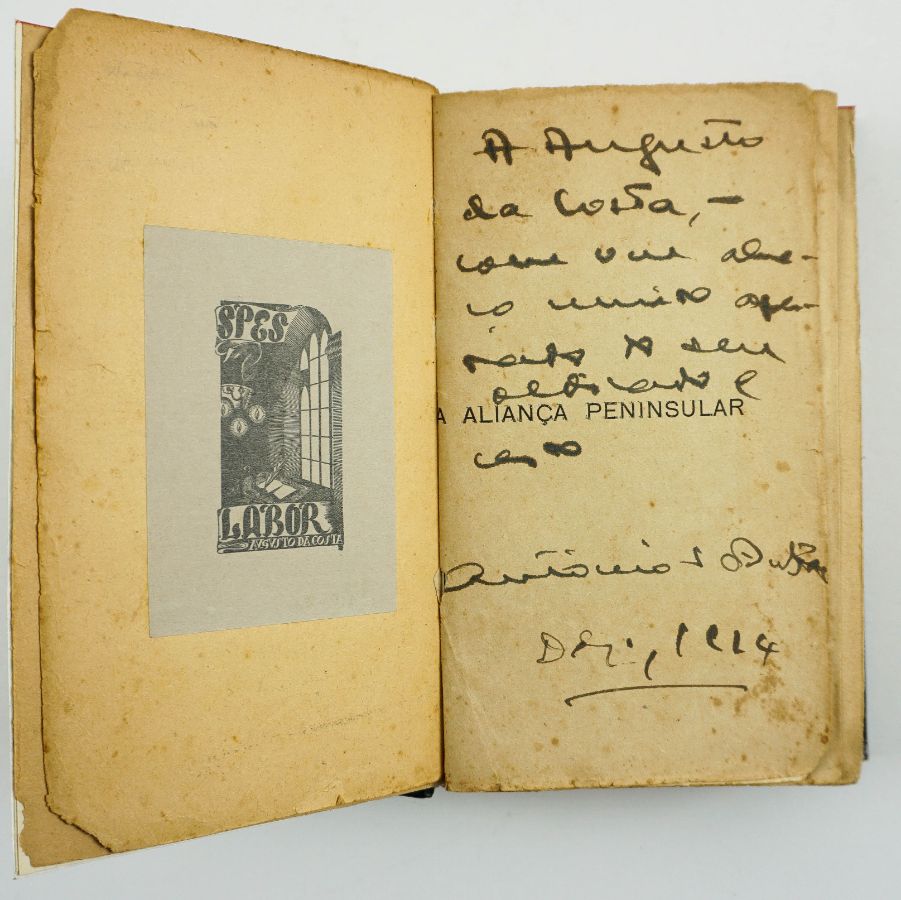 SPES
LABOR
AUGUSTO DA COSTA
A Augusto
da Costa, –
com um abra-
ço muito
o seu
dedicado e
A ALIANÇA PENINSULAR
António
Dez., 1924